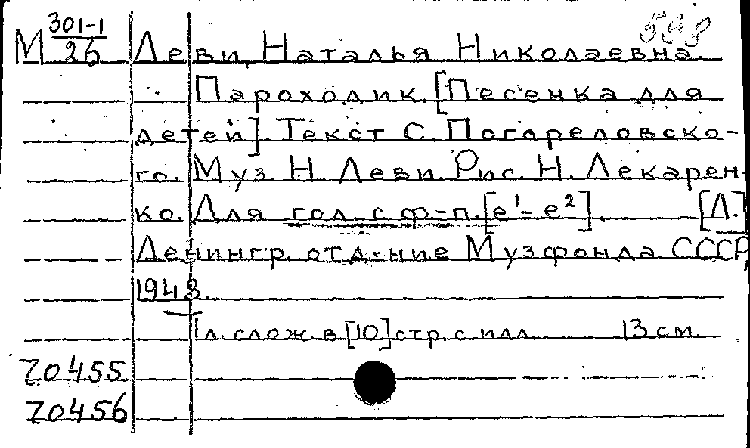 М 301-1/26 Леви, Наталья Николаевна.
Пароходик. [Песенка для
детей]. Текст С. Погореловско-
го. Муз. Н. Леви. Рис. Н. Лекарен-
ко. Для гол. с ф-п. [e¹-e²]. [Л.]
Ленингр. отд-ние Музфонда СССР,
1948.
1 л. слож. в [10] стр. с илл. 13 см.
70455
70456